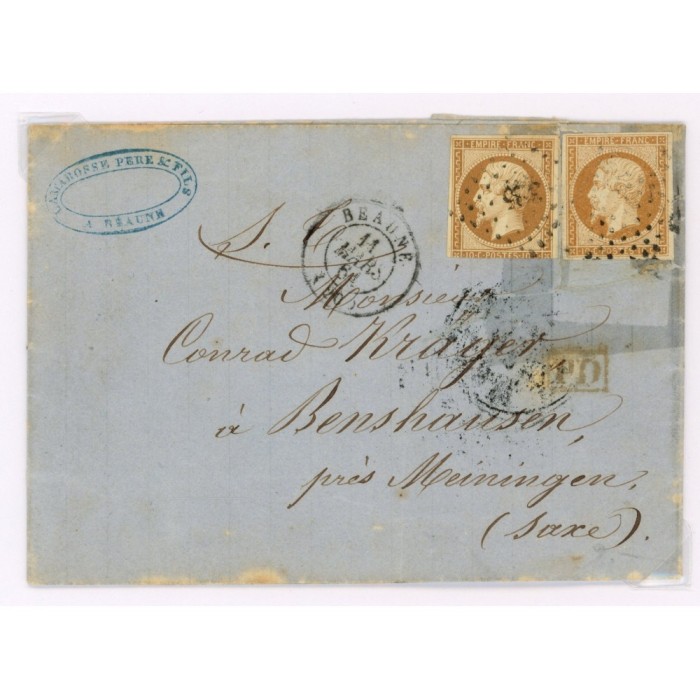 LAMAROSSE PERE & FILS
A BEAUNE
EMPIRE FRANC
10 C POSTES 10 C
EMPIRE FRANC
BEAUNE
11
MARS
S. T.
PD
Monsieur
Conrad Krayer
à Benshausen,
près Meiningen.
(Saxe).